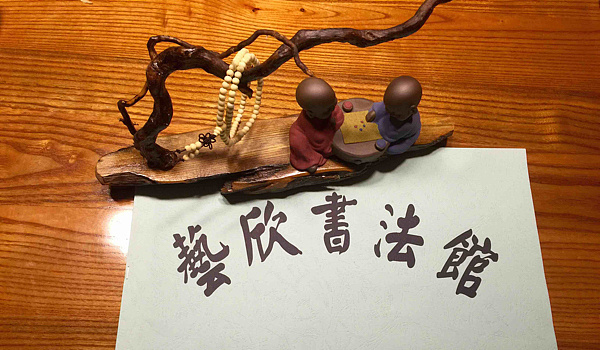 藝欣書法館